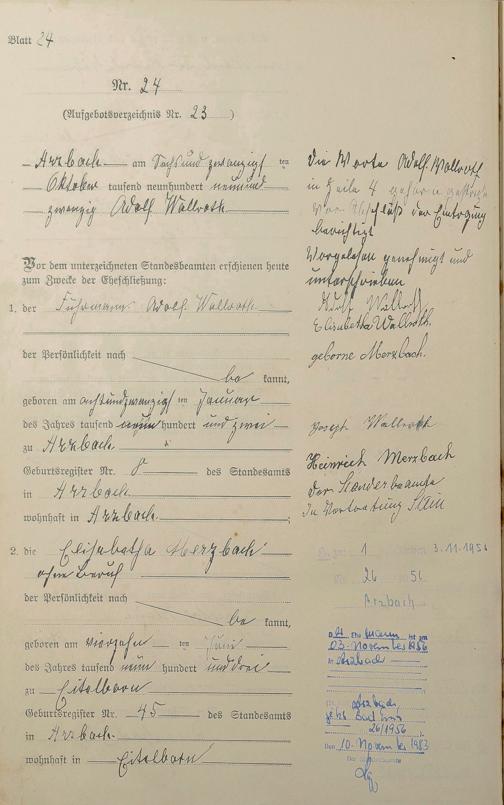 Blatt 24
Nr. 24
(Aufgebotsverzeichnis Nr. 23 )
Arzbach am Sechsund zwanzigsten
Oktober tausend neunhundert neunund
zwanzig Adolf Wallroth
Vor dem unterzeichneten Standesbeamten erschienen heute
zum Zwecke der Eheschließung:
1. der Fuhrmann Adolf Wallroth
der Persönlichkeit nach
be kannt,
geboren am achtundzwanzigsten Januar
des Jahres tausend neun hundert und zwei
zu Arzbach
Geburtsregister Nr. 8 des Standesamts
in Arzbach
wohnhaft in Arzbach ;
2. die Elisabetha Merzbach
ohne Beruf
der Persönlichkeit nach
be kannt,
geboren am vierzehn ten Juni
des Jahres tausend neun hundert und drei
zu Eitelborn
Geburtsregister Nr. 45 des Standesamts
in Arzbach
wohnhaft in Eitelborn
Die Worte Adolf Wallroth
in Zeile 4
vor Abschluß der Eintragung
berichtigt
Vorgelesen genehmigt und
unterschrieben
Adolf Wallroth
Elisabetha Wallroth
geborne Merzbach.
Joseph Wallroth
Heinrich Merzbach
Der Standesbeamte
In Vertretung Stein
1 3.11.1956
26 56
Arzbach
Ehemann ist am
03. November 1956
in Arzbach
Arzbach
Bad Ems
26/1956
Den 10. November 1983